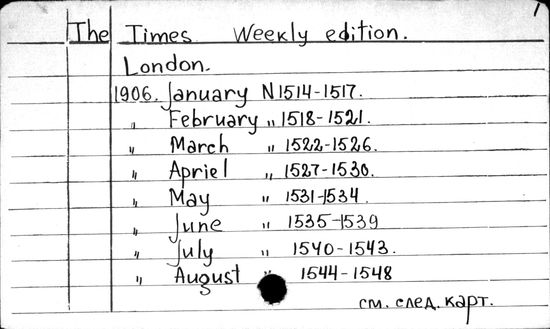 1
The Times Weekly edition.
London.
1906. January N 1514-1517.
„ February „ 1518-1521.
„ March „ 1522-1526.
„ Apriel „ 1527-1530.
„ May „ 1531-1534
„ June „ 1535-1539
„ July „ 1540-1543.
„ August „ 1544-1548
см. след. карт.